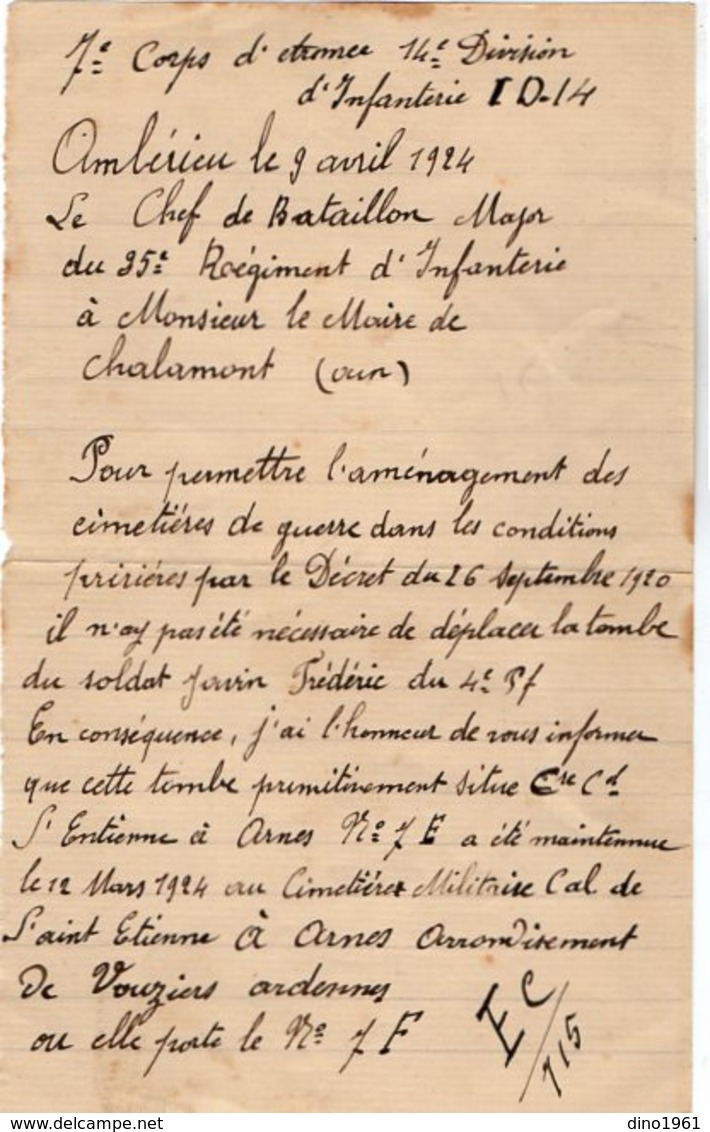 7e Corps d'armee 14e Division
d'Infanterie ID-14
Ambérieu le 9 avril 1924
Le Chef de Bataillon Major
du 35e Régiment d'Infanterie
à Monsieur le Maire de
chalamont (ain)
Pour permettre l'aménagement des
cimetiéres de guerre dans les conditions
par le Décret du 26 septembre 1920
il n'ay pas été nécessaire de déplacer la tombe
du soldat Jouvin Frédéric du 4e
En conséquence, j'ai l'honneur de vous informer
que cette tombe primitivement situe Cre Cal
St Entienne à Arnes No 7 E a été maintennue
le 12 Mars 1924 au Cimetiére Militaire Cal de
Saint Etienne à Arnes Arrondisement
De Vouziers ardennes
ou elle porte le No 7 E
EC/715
dino1961